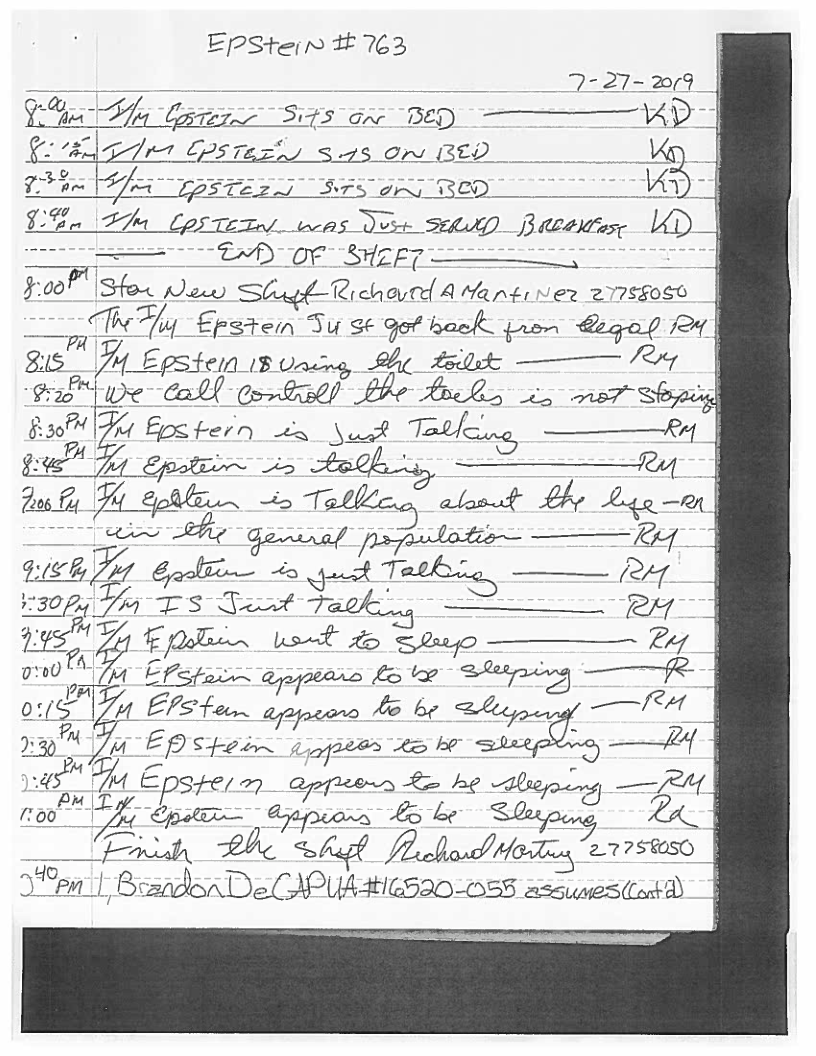 EPSteiN # 763
7-27-2019
8:00 AM I/M EPSTEIN SITS ON BED KD
8:15 AM I/M EPSTEIN SITS ON BED KD
8:30 AM I/M EPSTEIN SITS ON BED KD
8:40 AM I/M EPSTEIN WAS JUST SERVED BREAKFAST KD
END OF SHIFT
8:00 PM Star New Shift Richard A MartiNez 27758050
The I/M Epstein Just got back from legal RM
8:15 PM I/M Epstein is using the toilet RM
8:20 PM We call controll the is not stoping
8:30 PM I/M Epstein is Just Talking RM
8:45 PM I/M Epstein is talking RM
PM I/M Epstein is Talking about the life RM
in the general population RM
9:15 PM I/M Epstein is just Talking RM
:30 PM I/M IS Just Talking RM
9:45 PM I/M Epstein went to sleep RM
0:00 PM I/M EPstein appears to be sleeping R
0:15 PM I/M EPStein appears to be sleeping RM
:30 PM I/M EPStein appeas to be sleeping RM
:45 PM I/M Epstein appears to be sleeping RM
:00 AM I/M Epstein appears to be Sleeping
Finish the shift Richard 27758050
40 PM I, Brandon DeCAPUA #16520-055 assumes (Cont'd)